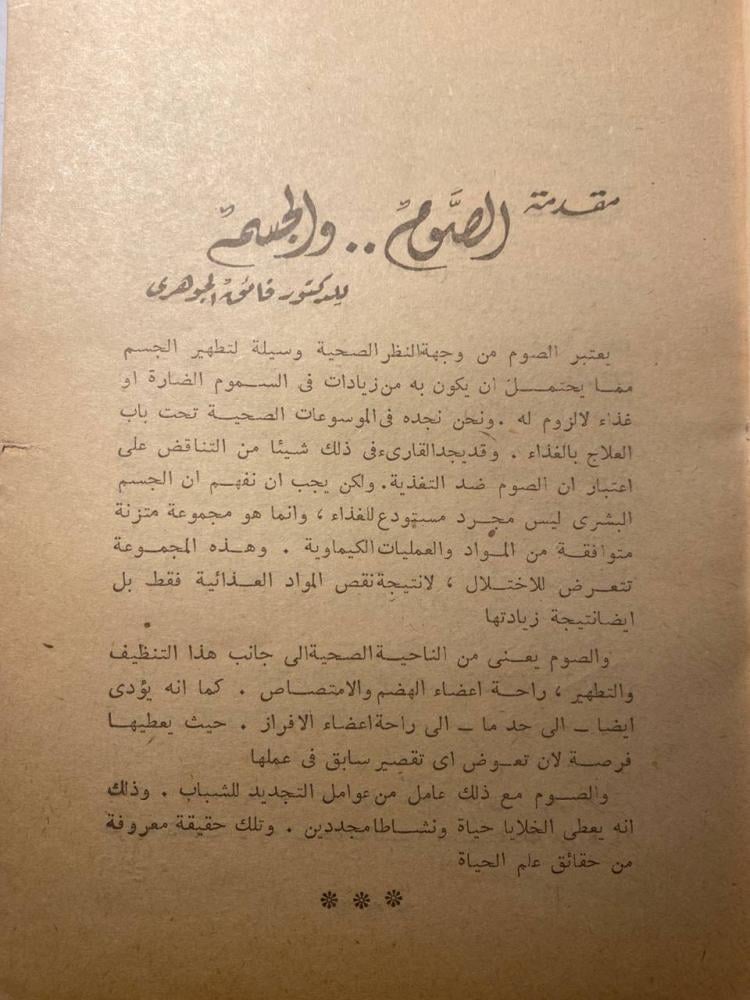 مقدمة الصَّوم .. والجسم
للدكتور فائق الجوهرى
يعتبر الصوم من وجهة النظر الصحية وسيلة لتطهير الجسم
مما يحتمل ان يكون به من زيادات فى السموم الضارة او
غذاء لالزوم له . ونحن نجده فى الموسوعات الصحية تحت باب
العلاج بالغذاء . وقد يجد القارىء فى ذلك شيئا من التناقض على
اعتبار ان الصوم ضد التغذية . ولكن يجب ان نفهم ان الجسم
البشرى ليس مجرد مستودع للغذاء ، وانما هو مجموعة متزنة
متوافقة من المواد والعمليات الكيماوية . وهذه المجموعة
تتعرض للاختلال ، لانتيجة نقص المواد الغذائية فقط بل
ايضا نتيجة زيادتها
والصوم يعنى من الناحية الصحية الى جانب هذا التنظيف
والتطهير ، راحة اعضاء الهضم والامتصاص . كما انه يؤدى
ايضا ــ الى حد ما ــ الى راحة اعضاء الافراز . حيث يعطيها
فرصة لان تعوض اى تقصير سابق فى عملها
والصوم مع ذلك عامل من عوامل التجديد للشباب . وذلك
انه يعطى الخلايا حياة ونشاطا مجددين . وتلك حقيقة معروفة
من حقائق علم الحياة
❊ ❊ ❊